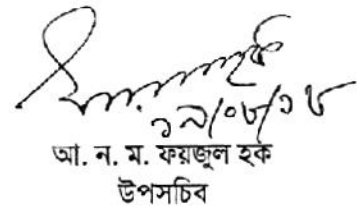 ১৯/০৮/১৮
আ. ন. ম. ফয়জুল হক
উপসচিব